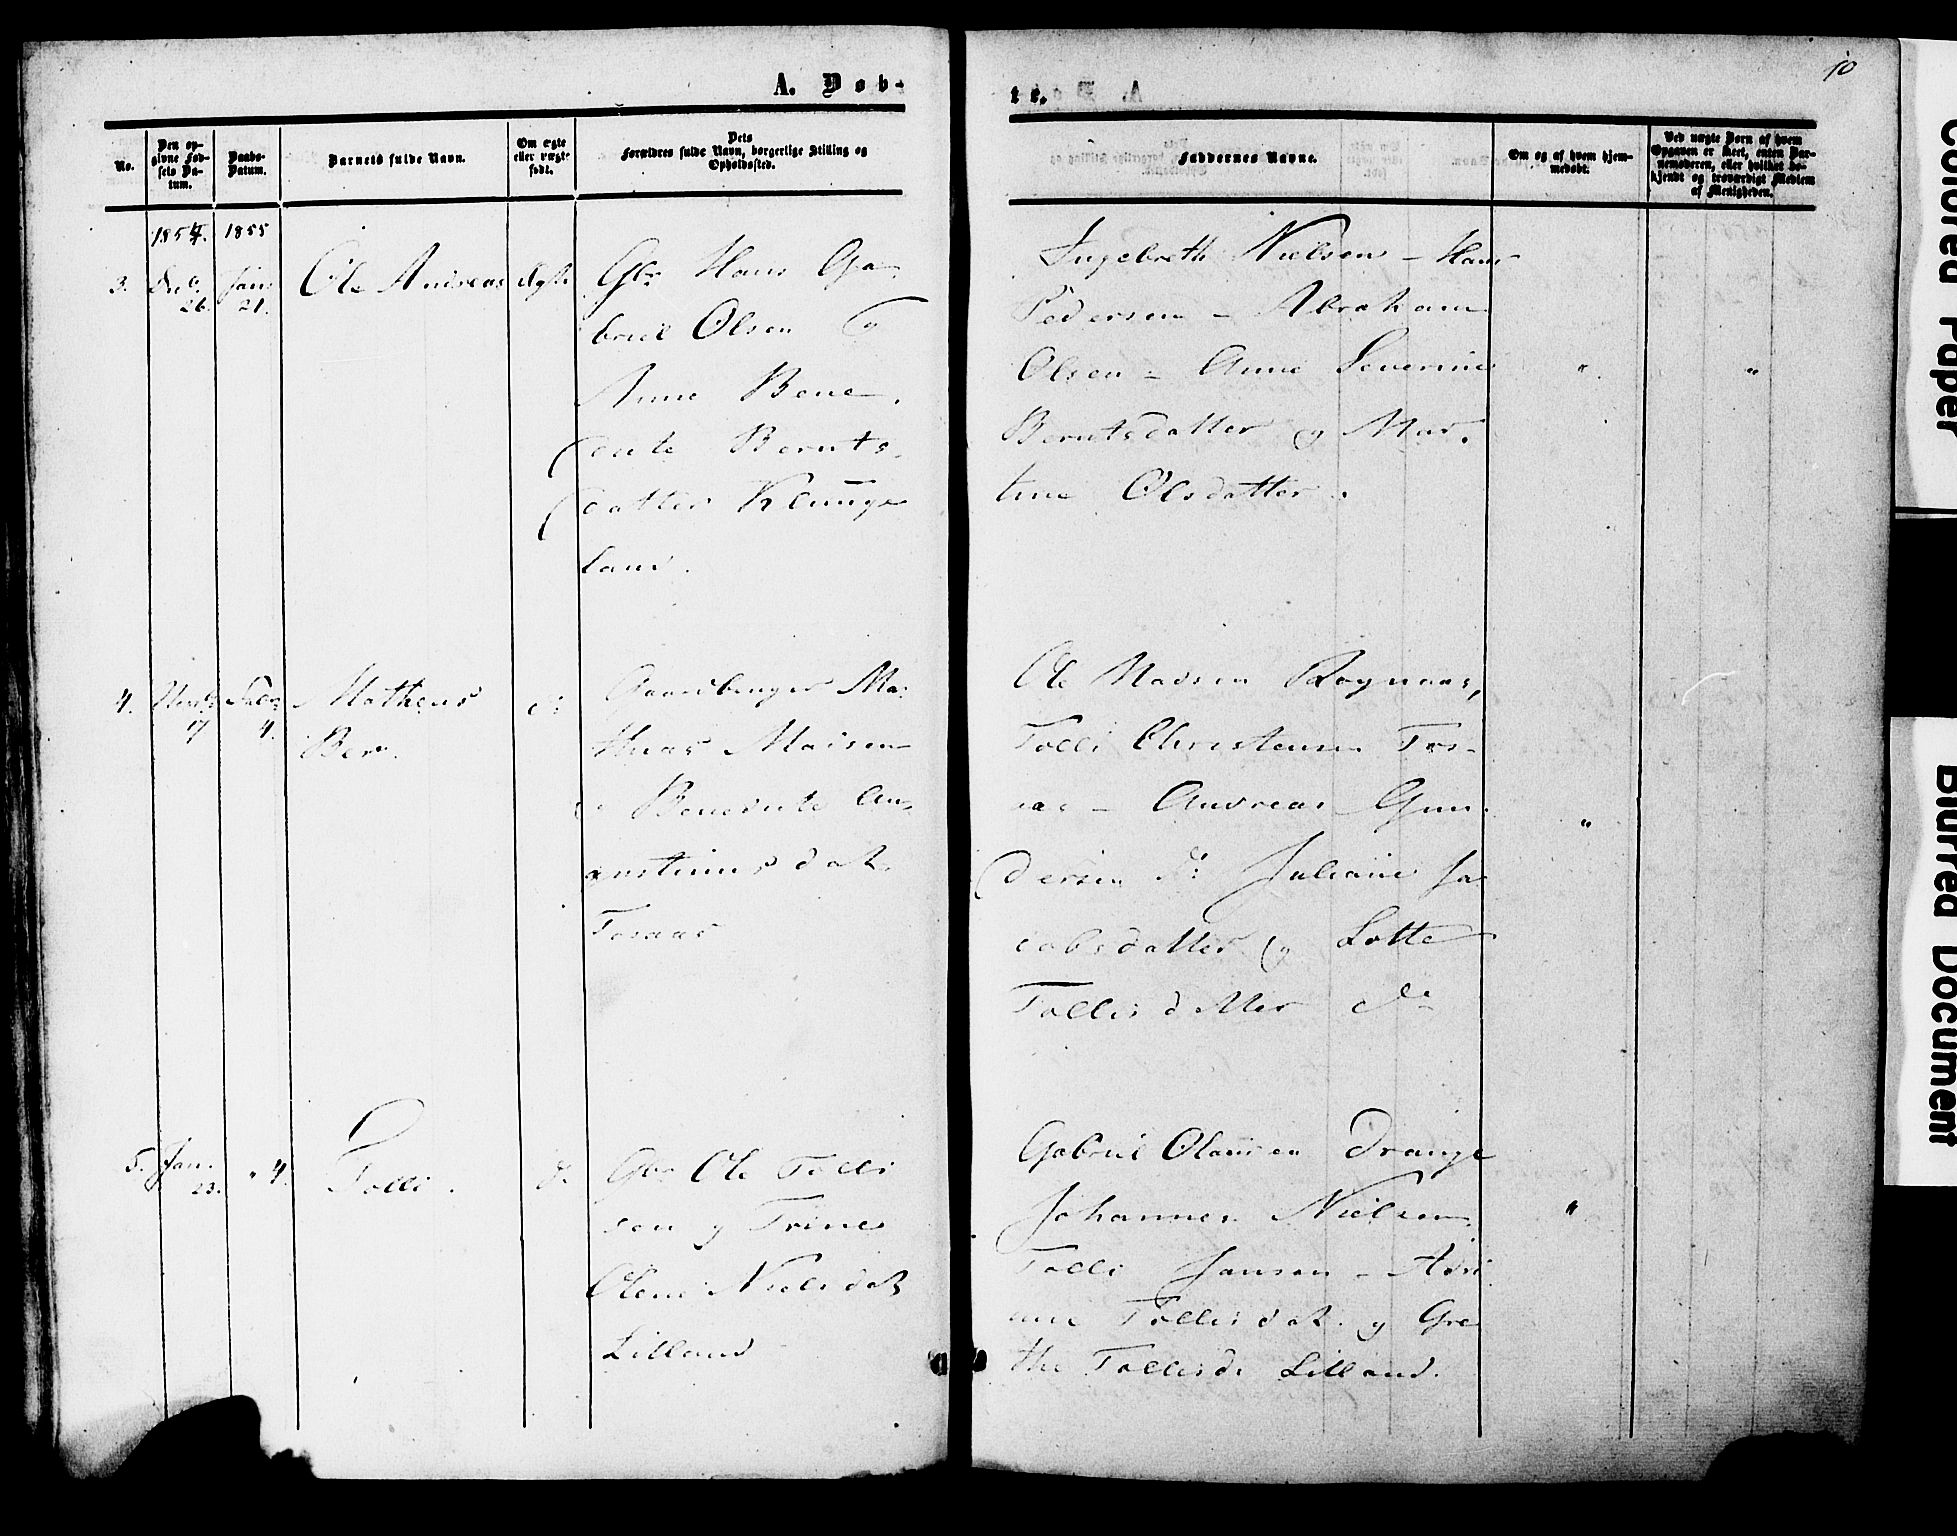 A. Døb-
te.
10
No.
Den op-
givne Fød-
sels Da-
tum.
Daabs-
Datum.
Barnets fulde Navn.
Om ægte
eller uægte
født.
Dets
Forældres fulde Navn, borgerlige Stilling og
Opholdssted.
Faddernes Navne.
Om og af hvem hjem-
medøbt.
Ved uægte Børn af hvem
Opgaven er skeet, enten Bar-
nemoderen, eller hvilket be-
kjendt og troværdigt Medlem
af Menigheden.
1854. 1855
3. Decb. 26. Jan. 21. Ole Andreas Ægte
Gbr Hans Ga-
briel Olsen og
Anne Bene-
dicte Bernts-
datter Klunge
land.
Ingebreth Nielsen - Hans
Pedersen - Abraham
Olsen - Anne Severine " "
Berntsdatter og Mar-
tine Olsdatter.
4. 17 Febr 4. Matheus
Ber. do
Gaardbruger Ma-
thias Madsen
og Benedicte Au-
gustinusdat.
Fosaas
Ole Madsen Rognaas,
Tolli Christensen Fos-
aas - Andreas Gun-
dersen do Juliane Ja-
cobsdatter og Lotte
Tollisdatter do
"
5. Jan. 23. " 4. Tolli. do
Gbr Ole Tolli
sen og Trine
Olene Nielsdatt
Lilland
Gabriel Olausen Drange
Johannes Nielsen "
Tolli Jansen - Adri
ane Tollisdat. og Gre
the Tollisd. Lilland.
Colored Paper
Blurred Document